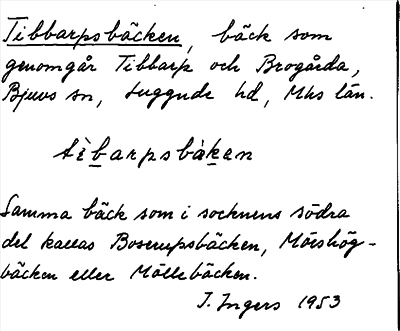 Tibbarpsbäcken, bäck som
genomgår Tibbarp och Brogårda,
Bjuvs sn, Luggude hd, Mhs län.
tìbarpsbàkan
Samma bäck som i socknens södra
del kallas Boserupsbäcken, Mörshög-
bäcken eller Möllebäcken.
I. Ingers 1953